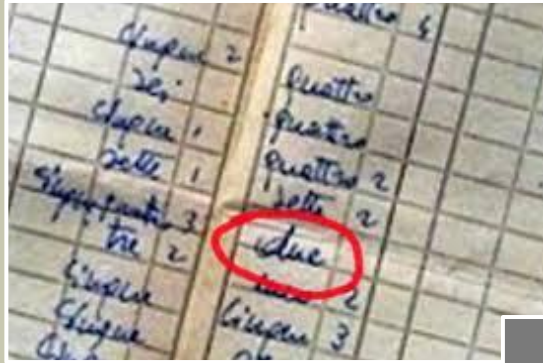 cinque 2
sei
cinque 1
sette 1
tre 2
cinque
cinque
due
quattro 4
quattro
quattro
quattro 2
sette 2
due
2
cinque 3